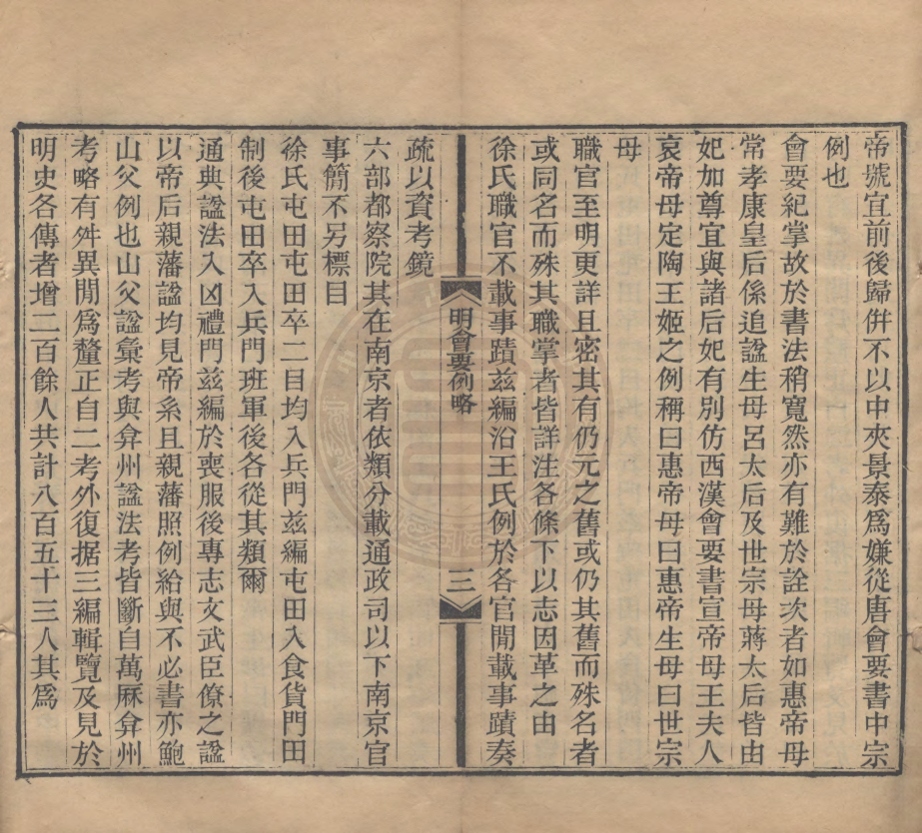 帝號宜前後歸併不以中夾景泰爲嫌從唐會要書中宗
例也
會要紀掌故於書法稍寬然亦有難於詮次者如惠帝母
常孝康皇后係追諡生母呂太后及世宗母蔣太后皆由
妃加尊宜與諸后妃有別仿西漢會要書宣帝母王夫人
哀帝母定陶王姬之例稱曰惠帝母曰惠帝生母曰世宗
母
職官至明更詳且密其有仍元之舊或仍其舊而殊名者
或同名而殊其職掌者皆詳注各條下以志因革之由
徐氏職官不載事蹟兹編沿王氏例於各官閒載事蹟奏
明會要例略
三
疏以資考鏡
六部都察院其在南京者依類分載通政司以下南京官
事簡不另標目
徐氏屯田屯田卒二目均入兵門兹編屯田入食貨門田
制後屯田卒入兵門班軍後各從其類爾
通典諡法入凶禮門兹編於喪服後專志文武臣僚之諡
以帝后親藩諡均見帝系且親藩照例給與不必書亦鮑
山父例也山父諡彙考與弇州諡法考皆斷自萬厤弇州
考略有舛異閒爲釐正自二考外復据三編輯覽及見於
明史各傳者增二百餘人共計八百五十三人其爲